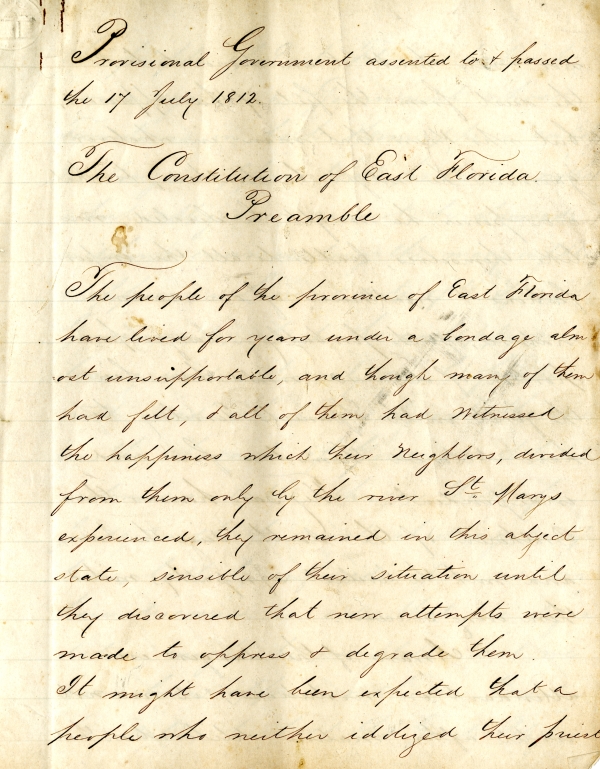 Provisional Government assented to & passed
the 17 July 1812.
The Constitution of East Florida.
Preamble
The people of the province of East Florida
have lived for years under a bondage alm
ost unsupportable, and though many of them
had felt, & all of them had Witnessed
the happiness which their Neighbors, divided
from them only by the river St. Marys
experienced, they remained in this abject
state, sinsible of their situation until
they discovered that new attempts were
made to oppress & degrade them.
It might have been expected that a
people who neither idolized their priest